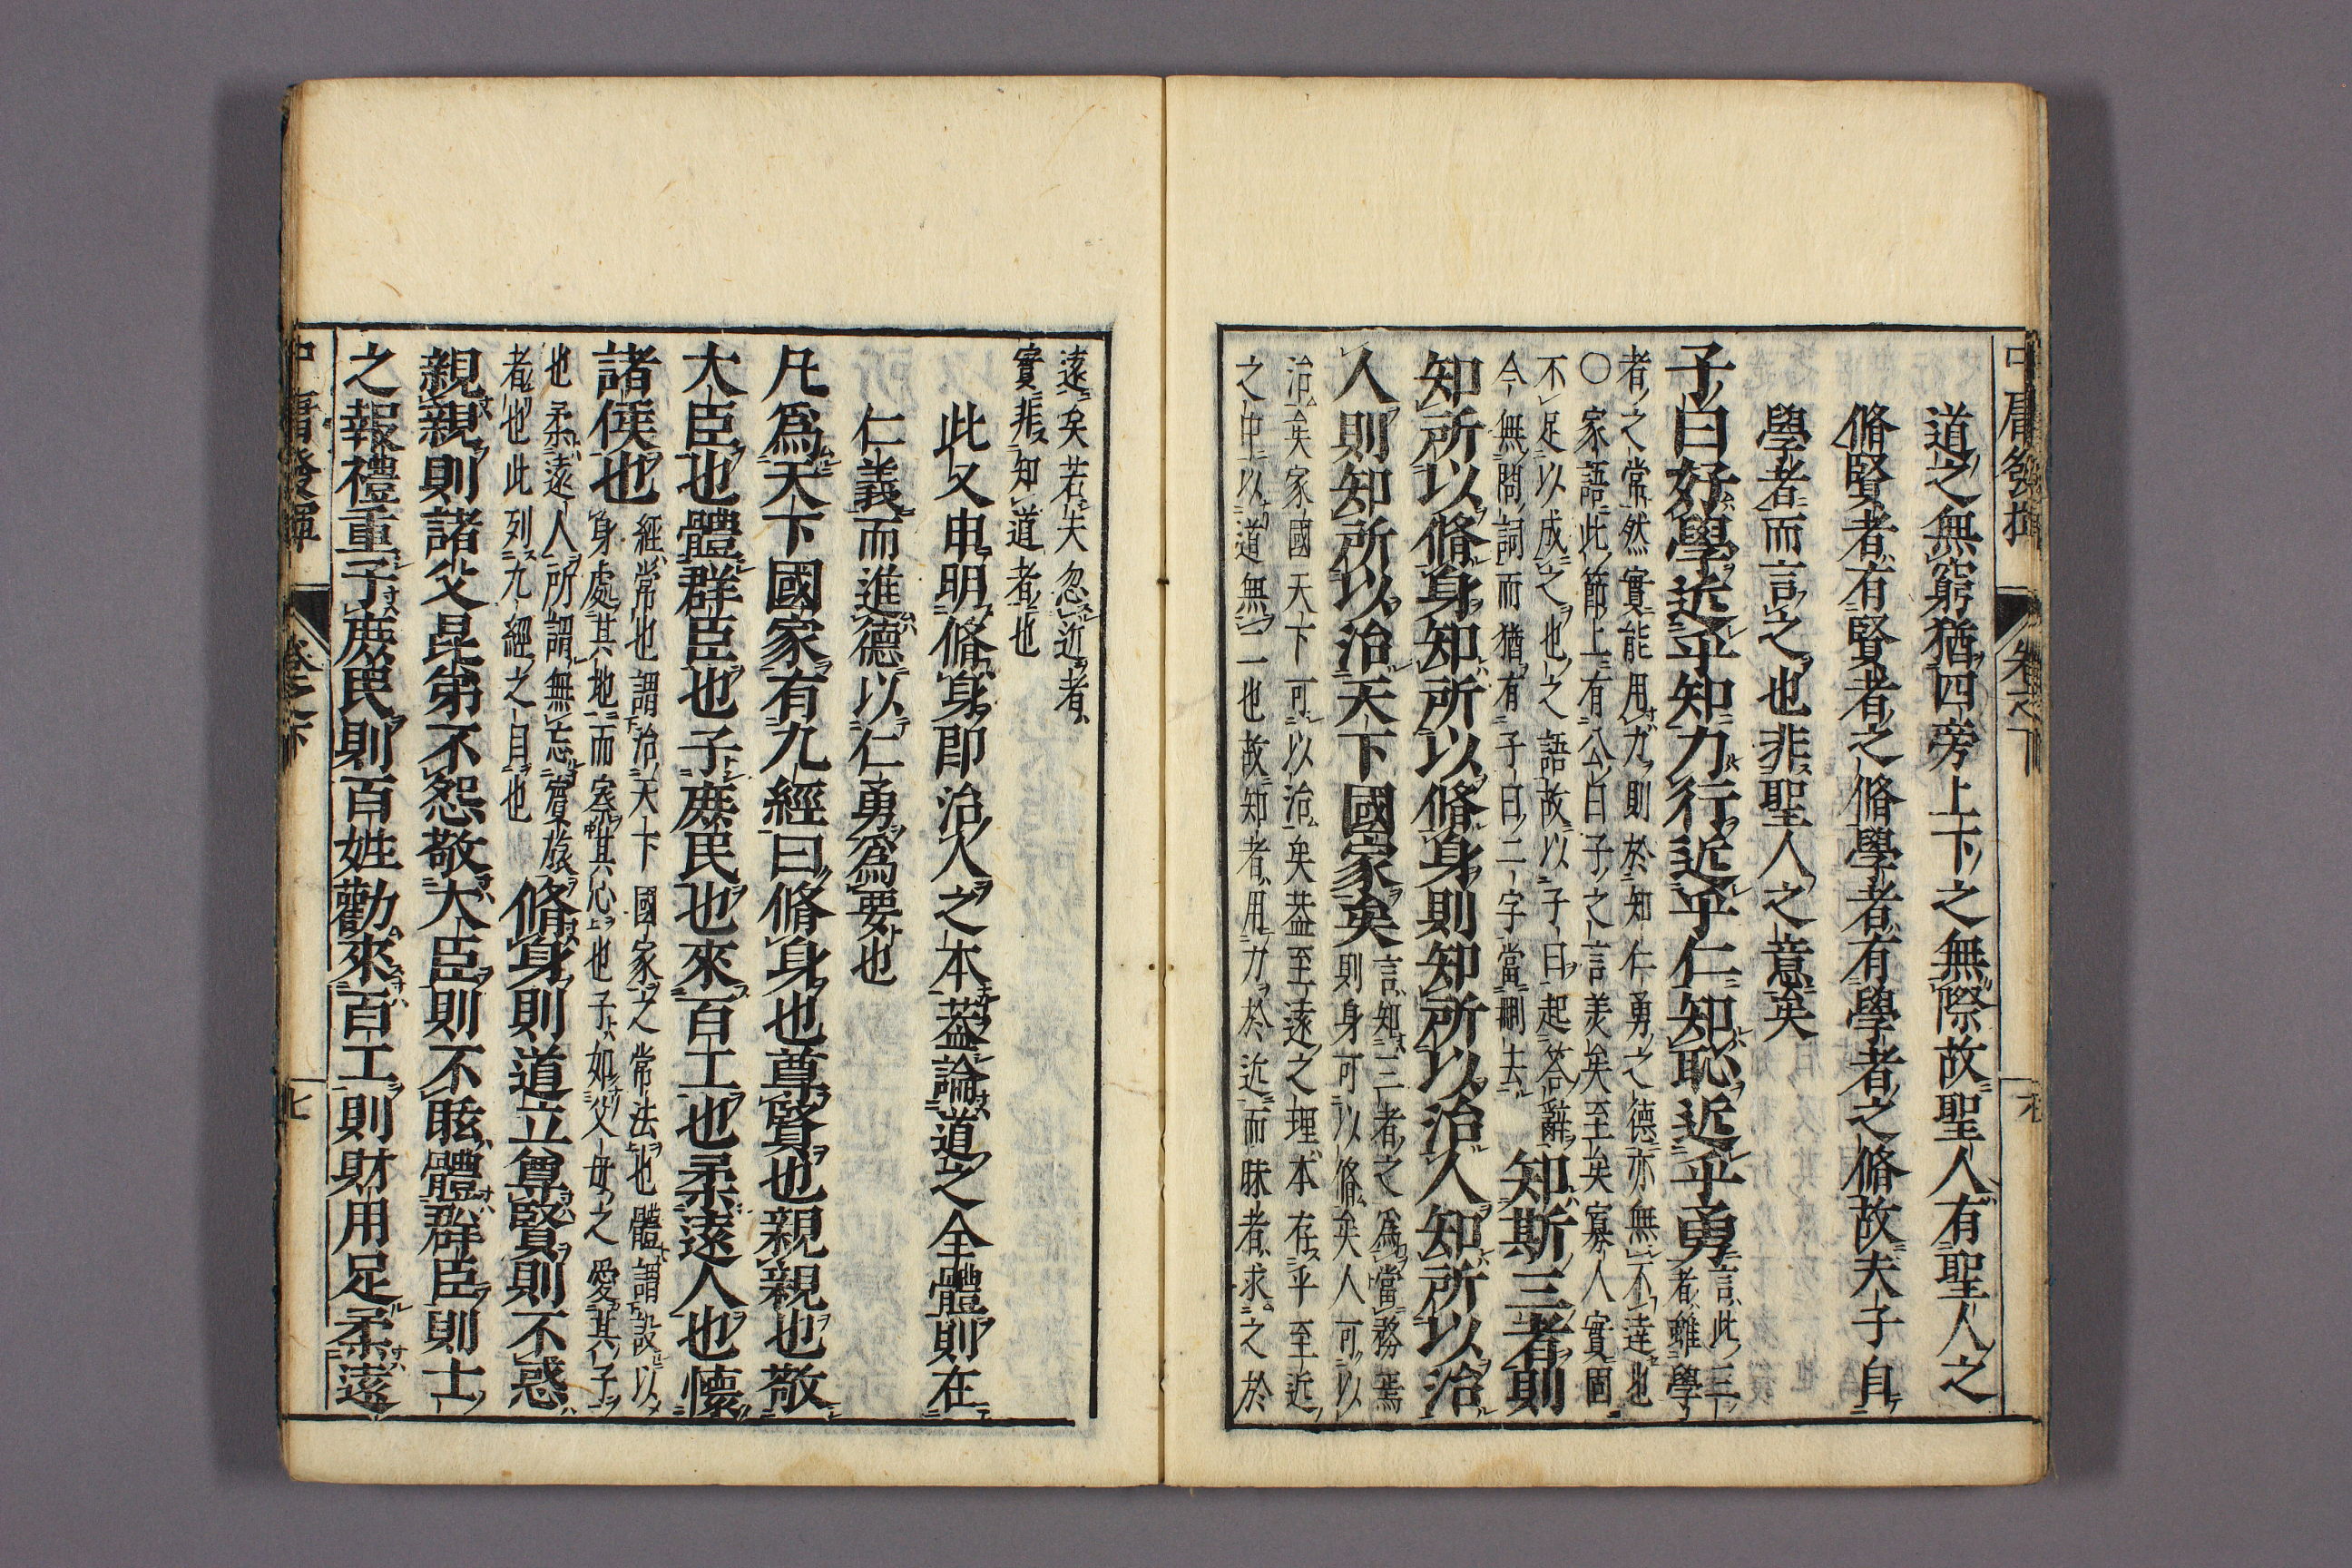 中庸發揮 卷之下 六
道之無窮猶四旁上下之無際故聖人有聖人之
脩賢者有賢者之脩學者有學者之脩故夫子自
學者而言之也非聖人之意矣
子曰好學近乎知力行近乎仁知恥近乎勇言此三
者雖學
者之常然實能用力則於知仁勇之德亦無不達也
○家語此節上有公曰子之言美矣至矣寡人實固
不足以成之也之語故以子曰起答辭
今無問詞而猶有子曰二字當刪去
知斯三者則
知所以脩身知所以脩身則知所以治人知所以治
人則知所以治天下國家矣言知三者之爲當務焉
則身可以脩矣人可以
治矣家國天下可以治矣葢至遠之理本存乎至近
之中以道無二也故知者用力於近而昧者求之於
遠矣若夫忽近者
實非知道者也
此又申明脩身即治人之本葢論道之全體則在
仁義而進德以仁勇爲要也
凡爲天下國家有九經曰脩身也尊賢也親親也敬
大臣也體群臣也子庶民也來百工也柔遠人也懷
諸侯也經常也謂治天下國家之常法也體謂設以
身處其地而察其心也子如父母之愛其子
也柔遠人所謂無忘賓旅
者也此列九經之目也
脩身則道立尊賢則不惑
親親則諸父昆弟不怨敬大臣則不眩體群臣則士
之報禮重子庶民則百姓勸來百工則財用足柔遠
中庸發揮 卷之下 七